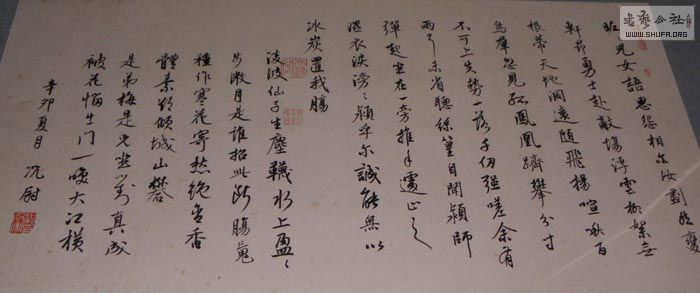 書藝公社
WWW.SHUFA.ORG
兒女語恩怨相尔汝劃然變
軒昂勇士赴敵場浮雲柳絮無
根蒂天地闊遠随飛揚喧啾百
鳥羣忽見孤鳳凰躋攀分寸
不可上失勢一落千仞强嗟余有
兩耳未省聽絲篁自聞穎師
彈起坐在一旁推手遽止之
濕衣淚滂〻穎乎尔誠能無以
冰炭置我腸
凌波仙子生塵襪水上盈〻
步微月是誰招此斷腸魂
種作寒花寄愁絶含香
體素欲傾城山礬
是弟梅是兄坐對真成
被花惱出門一笑大江横
辛卯夏月